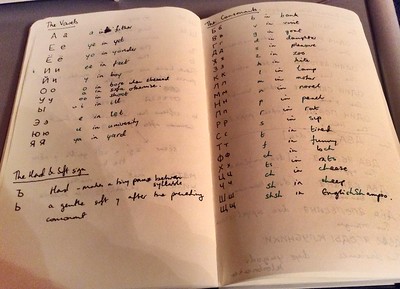 The Vowels
А а a in father
Е е ye in yet
Ё ё yo in yonder
И и ee in feet
Й й y in boy
О о o in when stressed
o in sofa otherwise.
У у oo in shoot
Ы i in ill
Э э e in let
Ю ю u in university
Я я ya in yard
The Hard & Soft sign
Ъ Hard - makes a tiny pause between
syllable
Ь a gentle soft y after the preceding
consonant
The Consonants
Б б b in bank
В в v in
Г г g in goat
Д д d in daughter
Ж ж s in pleasure
З з z in zoo
К к k in kite
Л л l in lamp
М м m in motor
Н н n in novel
П п p in peach
Р р r in rat
С с s in sip
Т т t in tired
Ф ф f in funny
Х х ch in loch
Ц ц ts in rats
Ч ч ch in cheese
Ш ш sh in sheep
Щ щ shsh in EnglishShampoo.